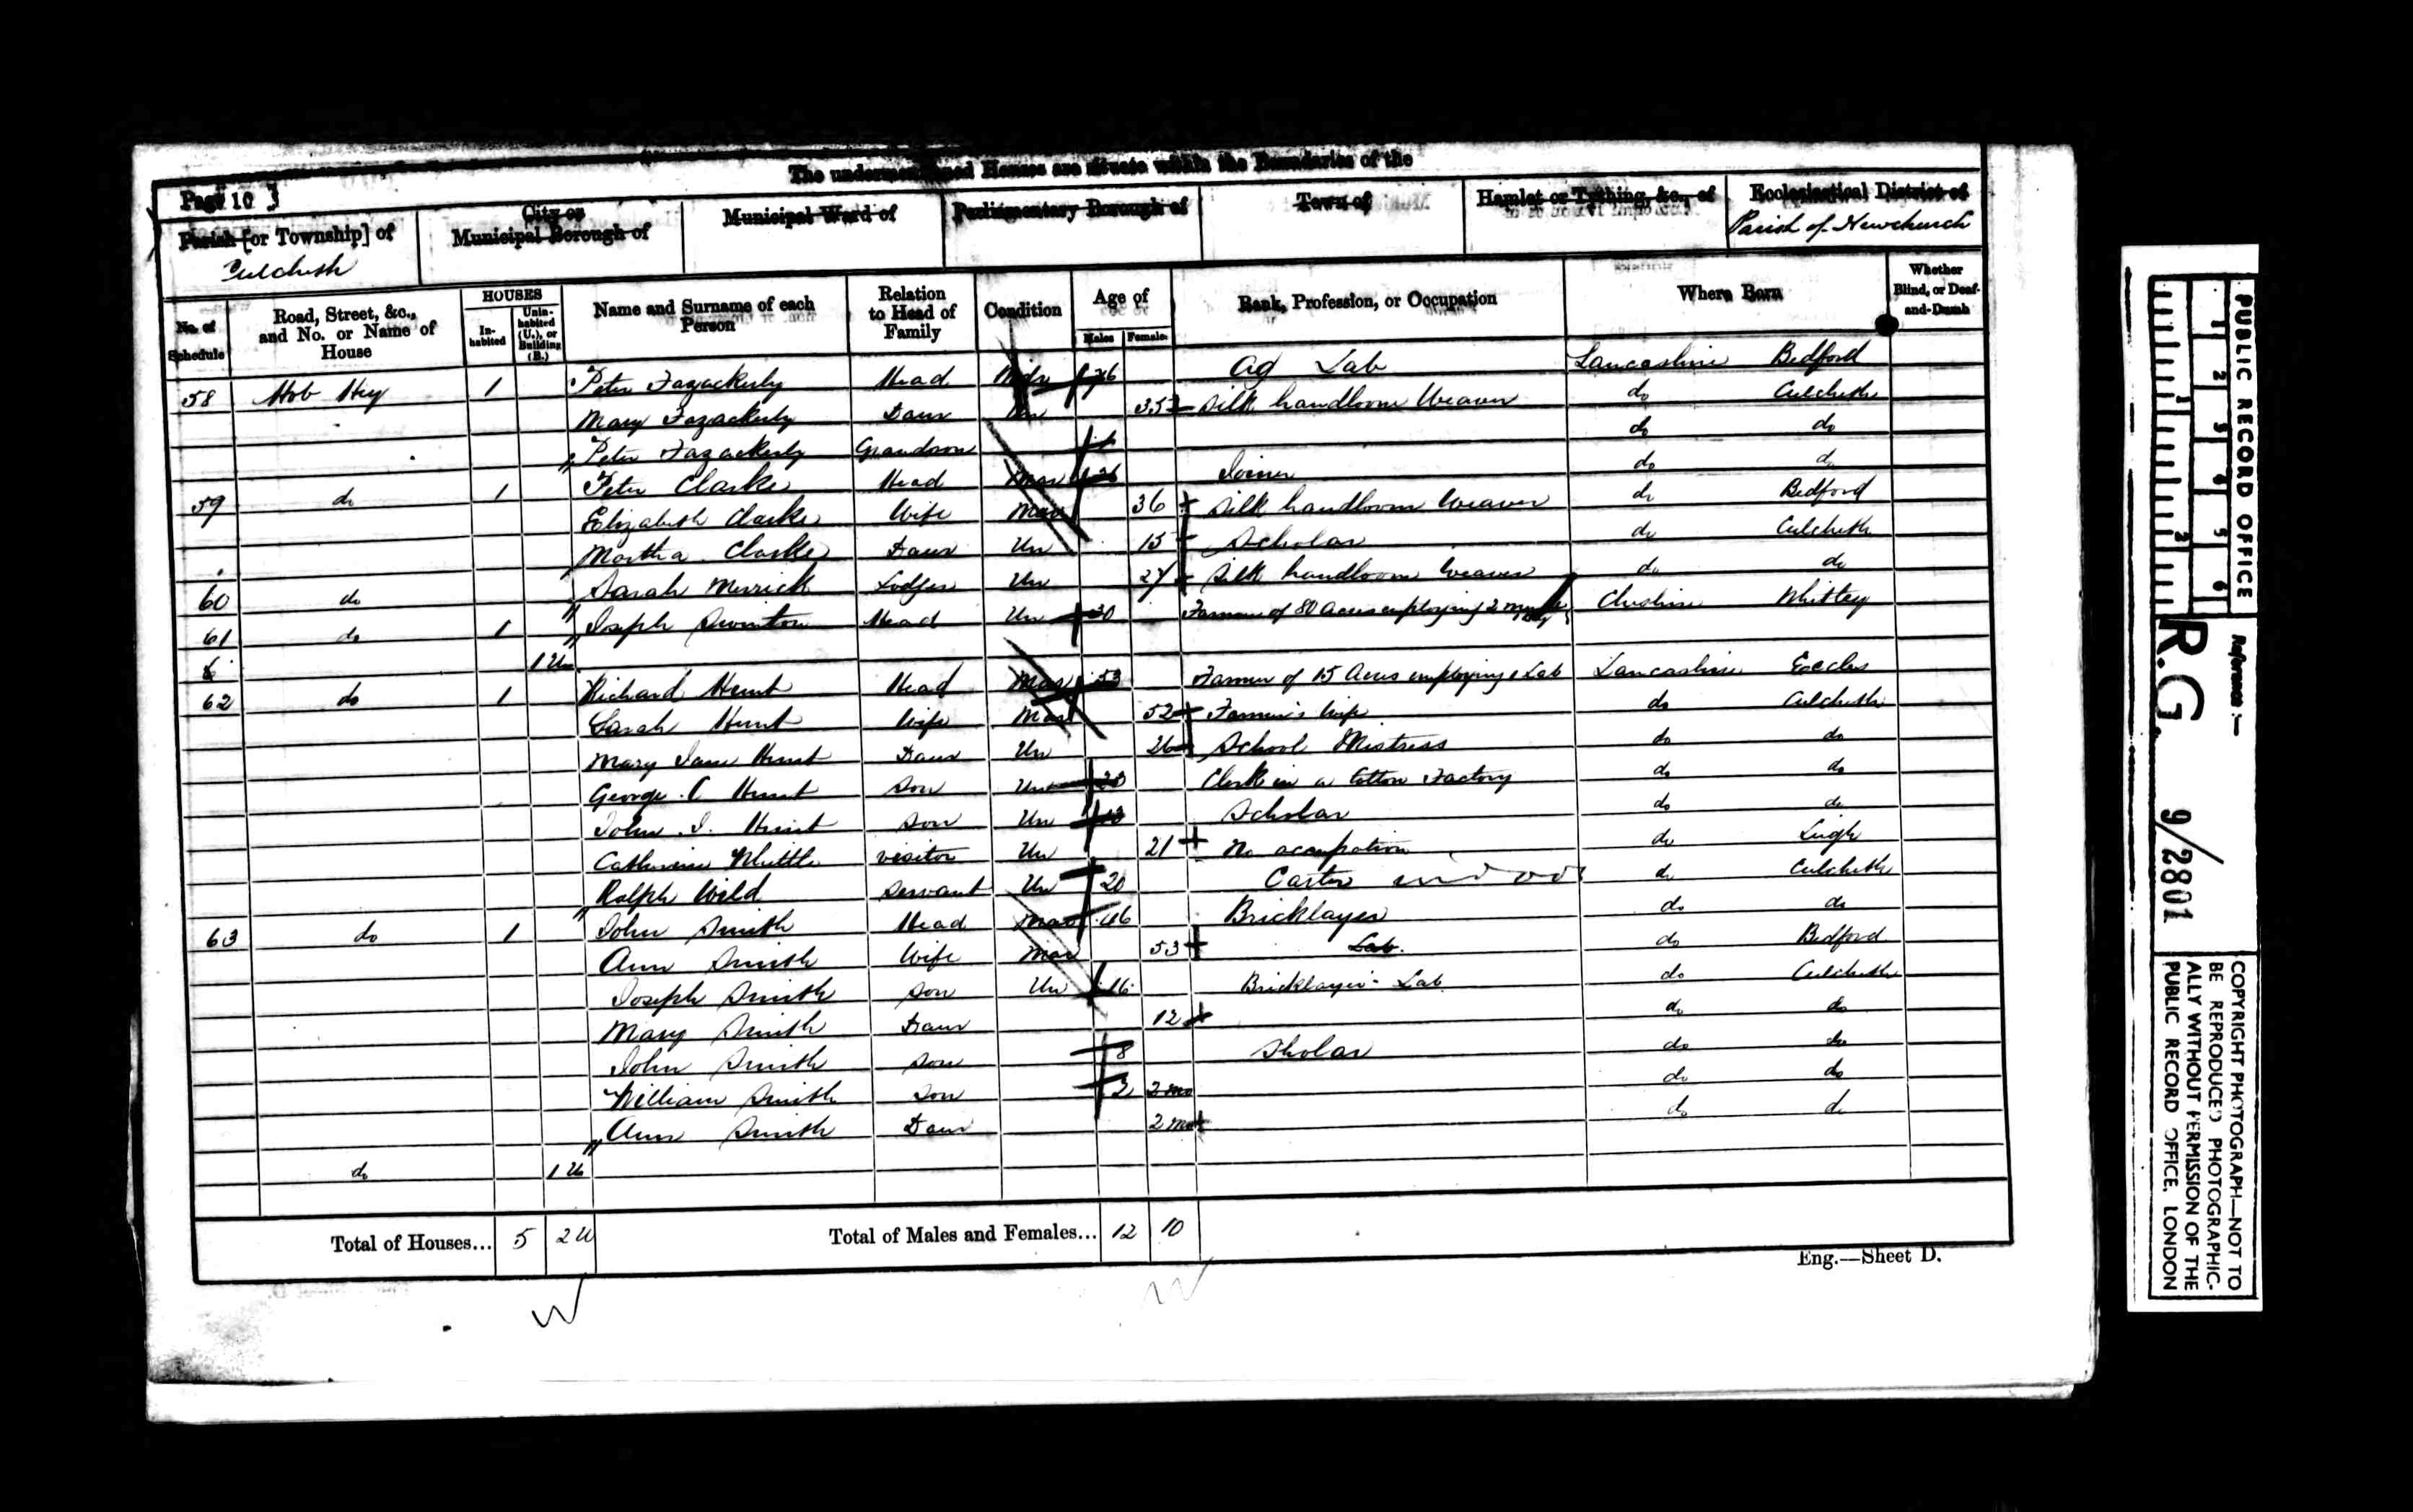 The undermentioned Houses are situate within the Boundaries of the
Page 10
Parish [or Township] of
Culcheth
City or Municipal Borough of
Municipal Ward of
Parliamentary Borough of
Town of
Hamlet or Tything, &c., of
Ecclesiastical District of
Parish of Newchurch
No. of Schedule
Road, Street, &c., and No. or Name of House
HOUSES
In-habited
Unin-habited (U.), or Building (B.)
Name and Surname of each Person
Relation to Head of Family
Condition
Age of
Males
Females
Rank, Profession, or Occupation
Where Born
Whether Blind, or Deaf-and-Dumb
58 Hob Hey 1 Peter Fazackerly Head Widr 76 Ag Lab Lancashire Bedford
Mary Fazackerly Daur Un 35 Silk handloom Weaver do Culcheth
Peter Fazackerly Grandson do do
59 do 1 Peter Clarke Head Mar 36 Joiner do do
Elizabeth Clarke Wife Mar 36 Silk handloom Weaver do Bedford
Martha Clarke Daur Un 15 Scholar do Culcheth
60 do Sarah Merrick Lodger Un 27 Silk handloom Weaver do do
61 do 1 Joseph Swinton Head Un 30 Farmer of 80 Acres employing 2 Cheshire Whitley
1 U
62 do 1 Richard Hunt Head Mar 53 Farmer of 15 Acres employing 1 Lab Lancashire Eccles
Sarah Hunt Wife Mar 52 Farmer's Wife do Culcheth
Mary Jane Hunt Daur Un 26 School Mistress do do
George C Hunt Son Un 23 Clerk in a Cotton Factory do do
John J. Hunt Son Un 13 Scholar do do
Catherine Whittle visitor Un 21 No occupation do Leigh
Ralph Wild Servant Un 20 Carter indoor do Culcheth
63 do 1 John Smith Head Mar 46 Bricklayer do do
Ann Smith Wife Mar 53 Lab. do Bedford
Joseph Smith Son Un 16 Bricklayer's Lab do Culcheth
Mary Smith Daur 12 do do
John Smith Son 8 Sholar do do
William Smith Son 3 2 mo do do
Ann Smith Daur 2 mo do do
do 1 U
Total of Houses... 5 2 U
Total of Males and Females... 12 10
Eng.—Sheet D.
PUBLIC RECORD OFFICE
1 2 3 4 5 6
1 2
Reference :—
R.G. 9/2801
COPYRIGHT PHOTOGRAPH—NOT TO
BE REPRODUCED PHOTOGRAPHIC-
ALLY WITHOUT PERMISSION OF THE
PUBLIC RECORD OFFICE, LONDON